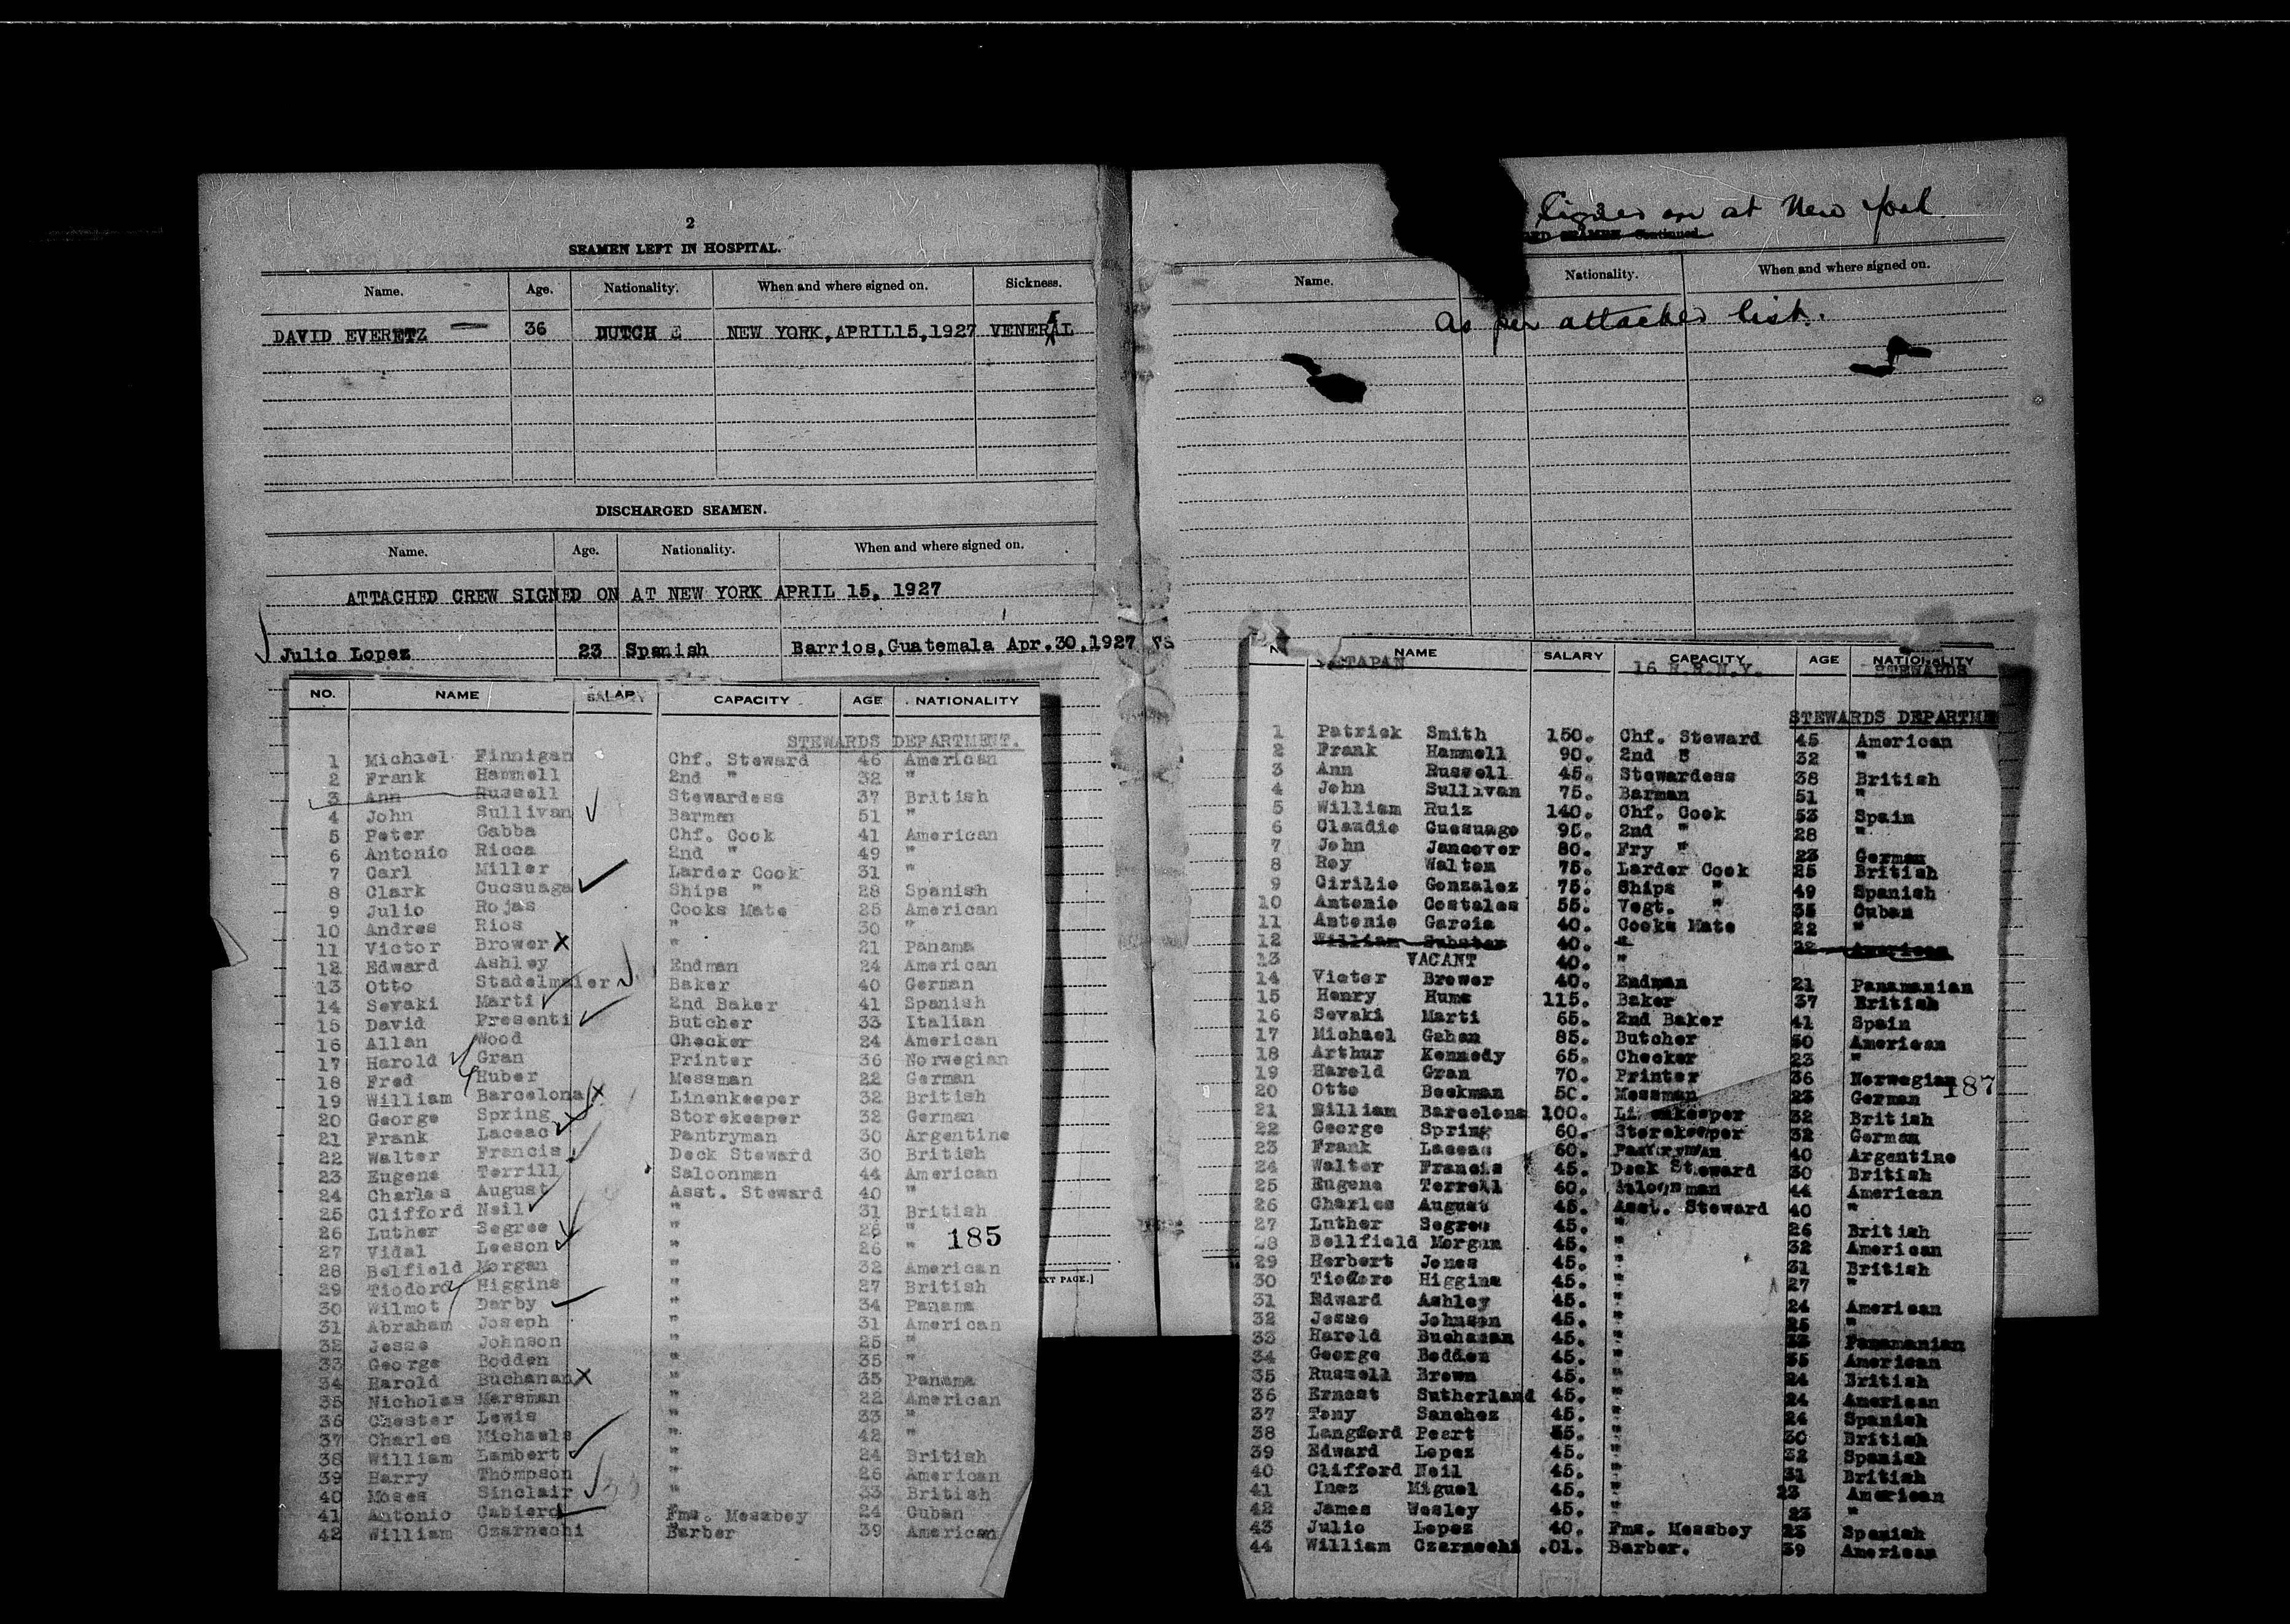 2
SEAMEN LEFT IN HOSPITAL.
Name. Age. Nationality. When and where signed on. Sickness.
DAVID EVERETZ — 36 DUTCH E NEW YORK, APRIL15,1927 VENERAL
DISCHARGED SEAMEN.
Name. Age. Nationality. When and where signed on.
ATTACHED CREW SIGNED ON AT NEW YORK APRIL 15, 1927
Julio Lopez 23 Spanish Barrios,Guatemala Apr.30,1927
NO. NAME SALARY CAPACITY AGE NATIONALITY
STEWARDS DEPARTMENT.
1 Michael Finnigan Chf. Steward 46 American
2 Frank Hammell 2nd " 32 "
3 Ann Russell Stewardess 37 British
4 John Sullivan Barman 51 "
5 Peter Gabba Chf. Cook 41 American
6 Antonio Ricca 2nd " 49 "
7 Carl Miller Larder Cook 31 "
8 Clark Cucsuaga Ships " 28 Spanish
9 Julio Rojas Cooks Mate 25 American
10 Andres Rios " 30 "
11 Victor Brower X " 21 Panama
12 Edward Ashley Endman 24 American
13 Otto Stadelmaier Baker 40 German
14 Sevaki Marti 2nd Baker 41 Spanish
15 David Presenti Butcher 33 Italian
16 Allan Wood Checker 24 American
17 Harold Gran Printer 36 Norwegian
18 Fred Huber Messman 22 German
19 William Barcelona X Linenkeeper 32 British
20 George Spring Storekeeper 32 German
21 Frank Laceac Pantryman 30 Argentine
22 Walter Francis Deck Steward 30 British
23 Eugene Terrill Saloonman 44 American
24 Charles August Asst. Steward 40 "
25 Clifford Neil " 31 British
26 Luther Segree " 26 "
27 Vidal Leeson " 26 "
185
28 Belfield Morgan " 32 American
29 Tiodoro Higgins " 27 British
30 Wilmot Darby " 34 Panama
31 Abraham Joseph " 31 American
32 Jesse Johnson " 25 "
33 George Bodden " 35 "
34 Harold Buchanan X " 33 Panama
35 Nicholas Marsman " 22 American
36 Chester Lewis " 33 "
37 Charles Michaels " 42 "
38 William Lambert " 24 British
39 Harry Thompson " 26 American
40 Moses Sinclair " 33 British
41 Antonio Cabiero Fms. Messboy 24 Cuban
42 William Czarnechi Barber 39 American
EXT PAGE.]
Signed on at New York
SEAMEN—Continued.
Name. Nationality. When and where signed on.
As per attached list.
NAME SALARY CAPACITY AGE NATIONALITY
TAPAN 16 N.R.N.Y. STEWARDS
STEWARDS DEPARTME
1 Patrick Smith 150. Chf. Steward 45 American
2 Frank Hammell 90. 2nd " 32 "
3 Ann Russell 45. Stewardess 38 British
4 John Sullivan 75. Barman 51 "
5 William Ruiz 140. Chf. Cook 53 Spain
6 Claudio Cucsuago 95. 2nd " 28 "
7 John Jancover 80. Fry " 23 German
8 Roy Walton 75. Larder Cook 25 British
9 Cirilio Gonzalez 75. Ships " 49 Spanish
10 Antonio Costales 55. Vegt. " 35 Cuban
11 Antonio Garcia 40. Cooks Mate 22 "
12 William 40. " 22 American
13 VACANT 40. "
14 Victor Brower 40. Endman 21 Panamanian
15 Henry Hume 115. Baker 37 British
16 Sevaki Marti 65. 2nd Baker 41 Spain
17 Michael Gahan 85. Butcher 50 American
18 Arthur Kennedy 65. Checker 23 "
19 Harold Gran 70. Printer 36 Norwegian
187
20 Otto Beekman 50. Messman 23 German
21 William Barcelona 100. Linenkeeper 32 British
22 George Spring 60. Storekeeper 32 German
23 Frank Laceac 60. Pantryman 40 Argentine
24 Walter Francis 45. Deck Steward 30 British
25 Eugene Terrell 60. Saloonman 44 American
26 Charles August 45. Asst. Steward 40 "
27 Luther Segree 45. " 26 British
28 Bellfield Morgan 45. " 32 American
29 Herbert Jones 45. " 31 British
30 Tiodoro Higgins 45. " 27 "
31 Edward Ashley 45. " 24 American
32 Jesse Johnson 45. " 25 "
33 Harold Buchanan 45. " 33 Panamanian
34 George Bodden 45. " 35 American
35 Russell Brown 45. " 24 British
36 Ernest Sutherland 45. " 24 American
37 Tony Sanchez 45. " 24 Spanish
38 Langford Peart 45. " 30 British
39 Edward Lopez 45. " 32 Spanish
40 Clifford Neil 45. " 31 British
41 Inez Miguel 45. " 23 American
42 James Wesley 45. " 23 "
43 Julio Lopez 40. Fms. Messboy 23 Spanish
44 William Czarnechi .01. Barber. 39 American